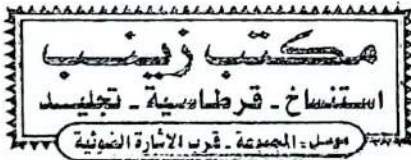 مكتب زينب
استنساخ - قرطاسية - تجليد
موصل - المجموعة - قرب الاشارة الضوئية